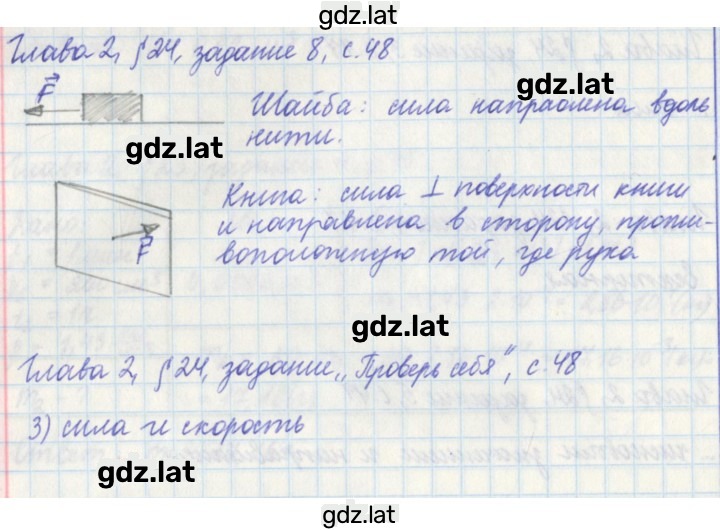 gdz.lat
Глава 2, §24, задание 8, с.48
F
gdz.lat
Шайба: сила направлена вдоль
нити.
Книга: сила ⊥ поверхности книги
и направлена в сторону, проти-
воположную той, где рука
F
gdz.lat
Глава 2, §24, задание „Проверь себя", с.48
3) сила и скорость
gdz.lat
gdz.lat